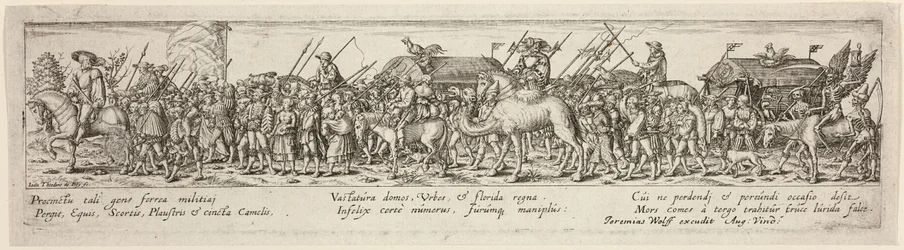 Ioān Theodore de Bry fe.
Procinctu tali gens ferrea militiai
Pergit, Equis, Scortis, Plaustris & cuncta Camelis,
Vastatura domos, Urbes, & florida regna.
Infelix certe numerus, furumq, maniplus:
Cui ne perdendi & pereundi occasio desit
Mors Comes à tergo trahitur truce lurida falce.
Jeremias Wolff excudit Aug: Vind: